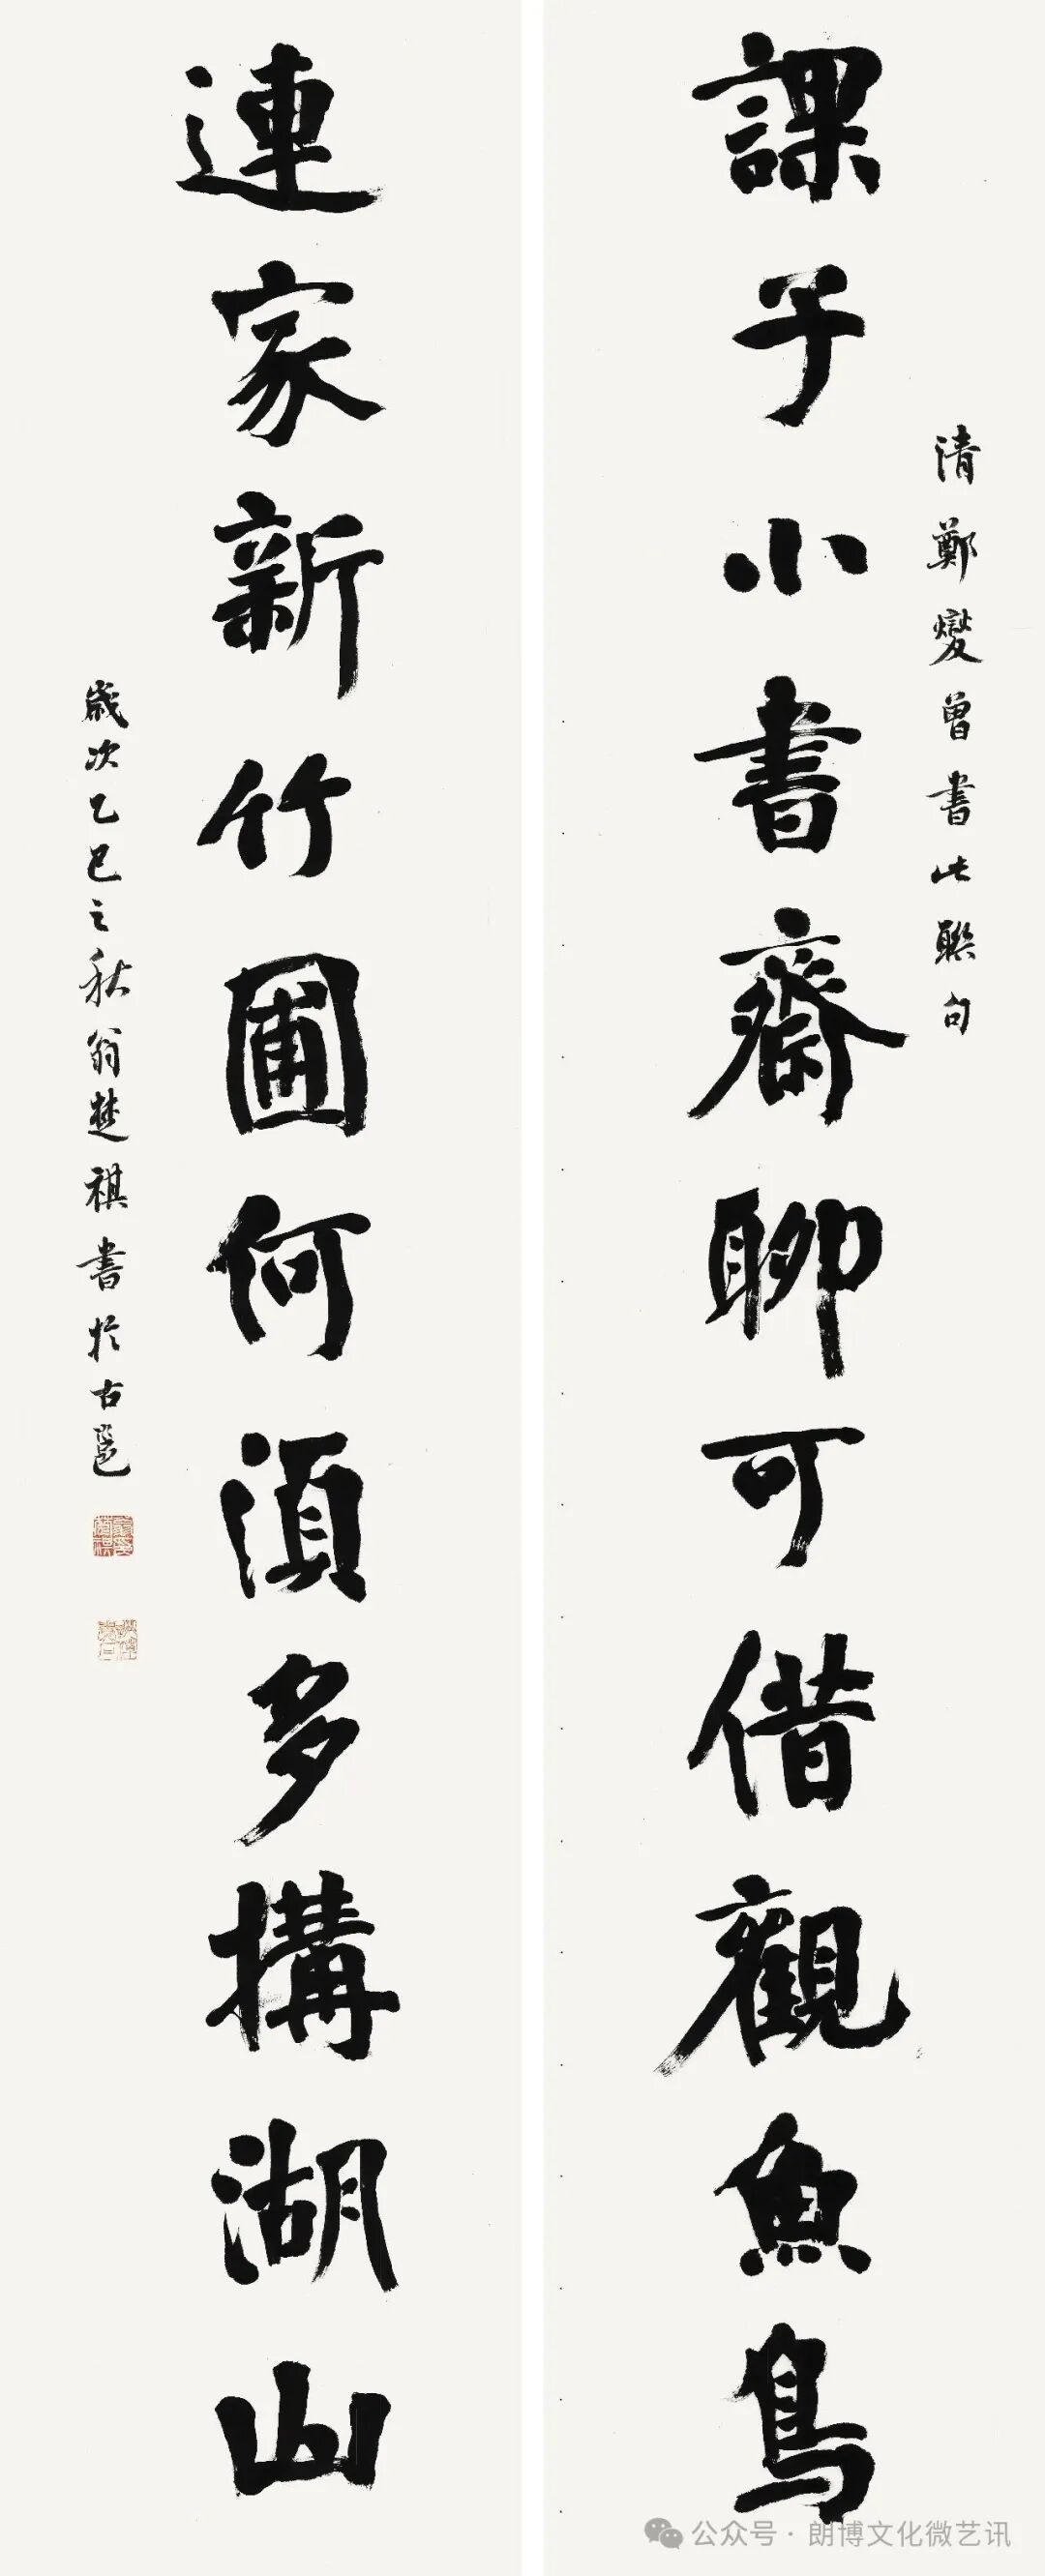 課子小書齋聊可借觀魚鳥
清鄭燮曾書此聯句
連家新竹圃何須多搆湖山
歲次乙巳之秋翁楚祺書於古邕
公众号·朗博文化微艺讯